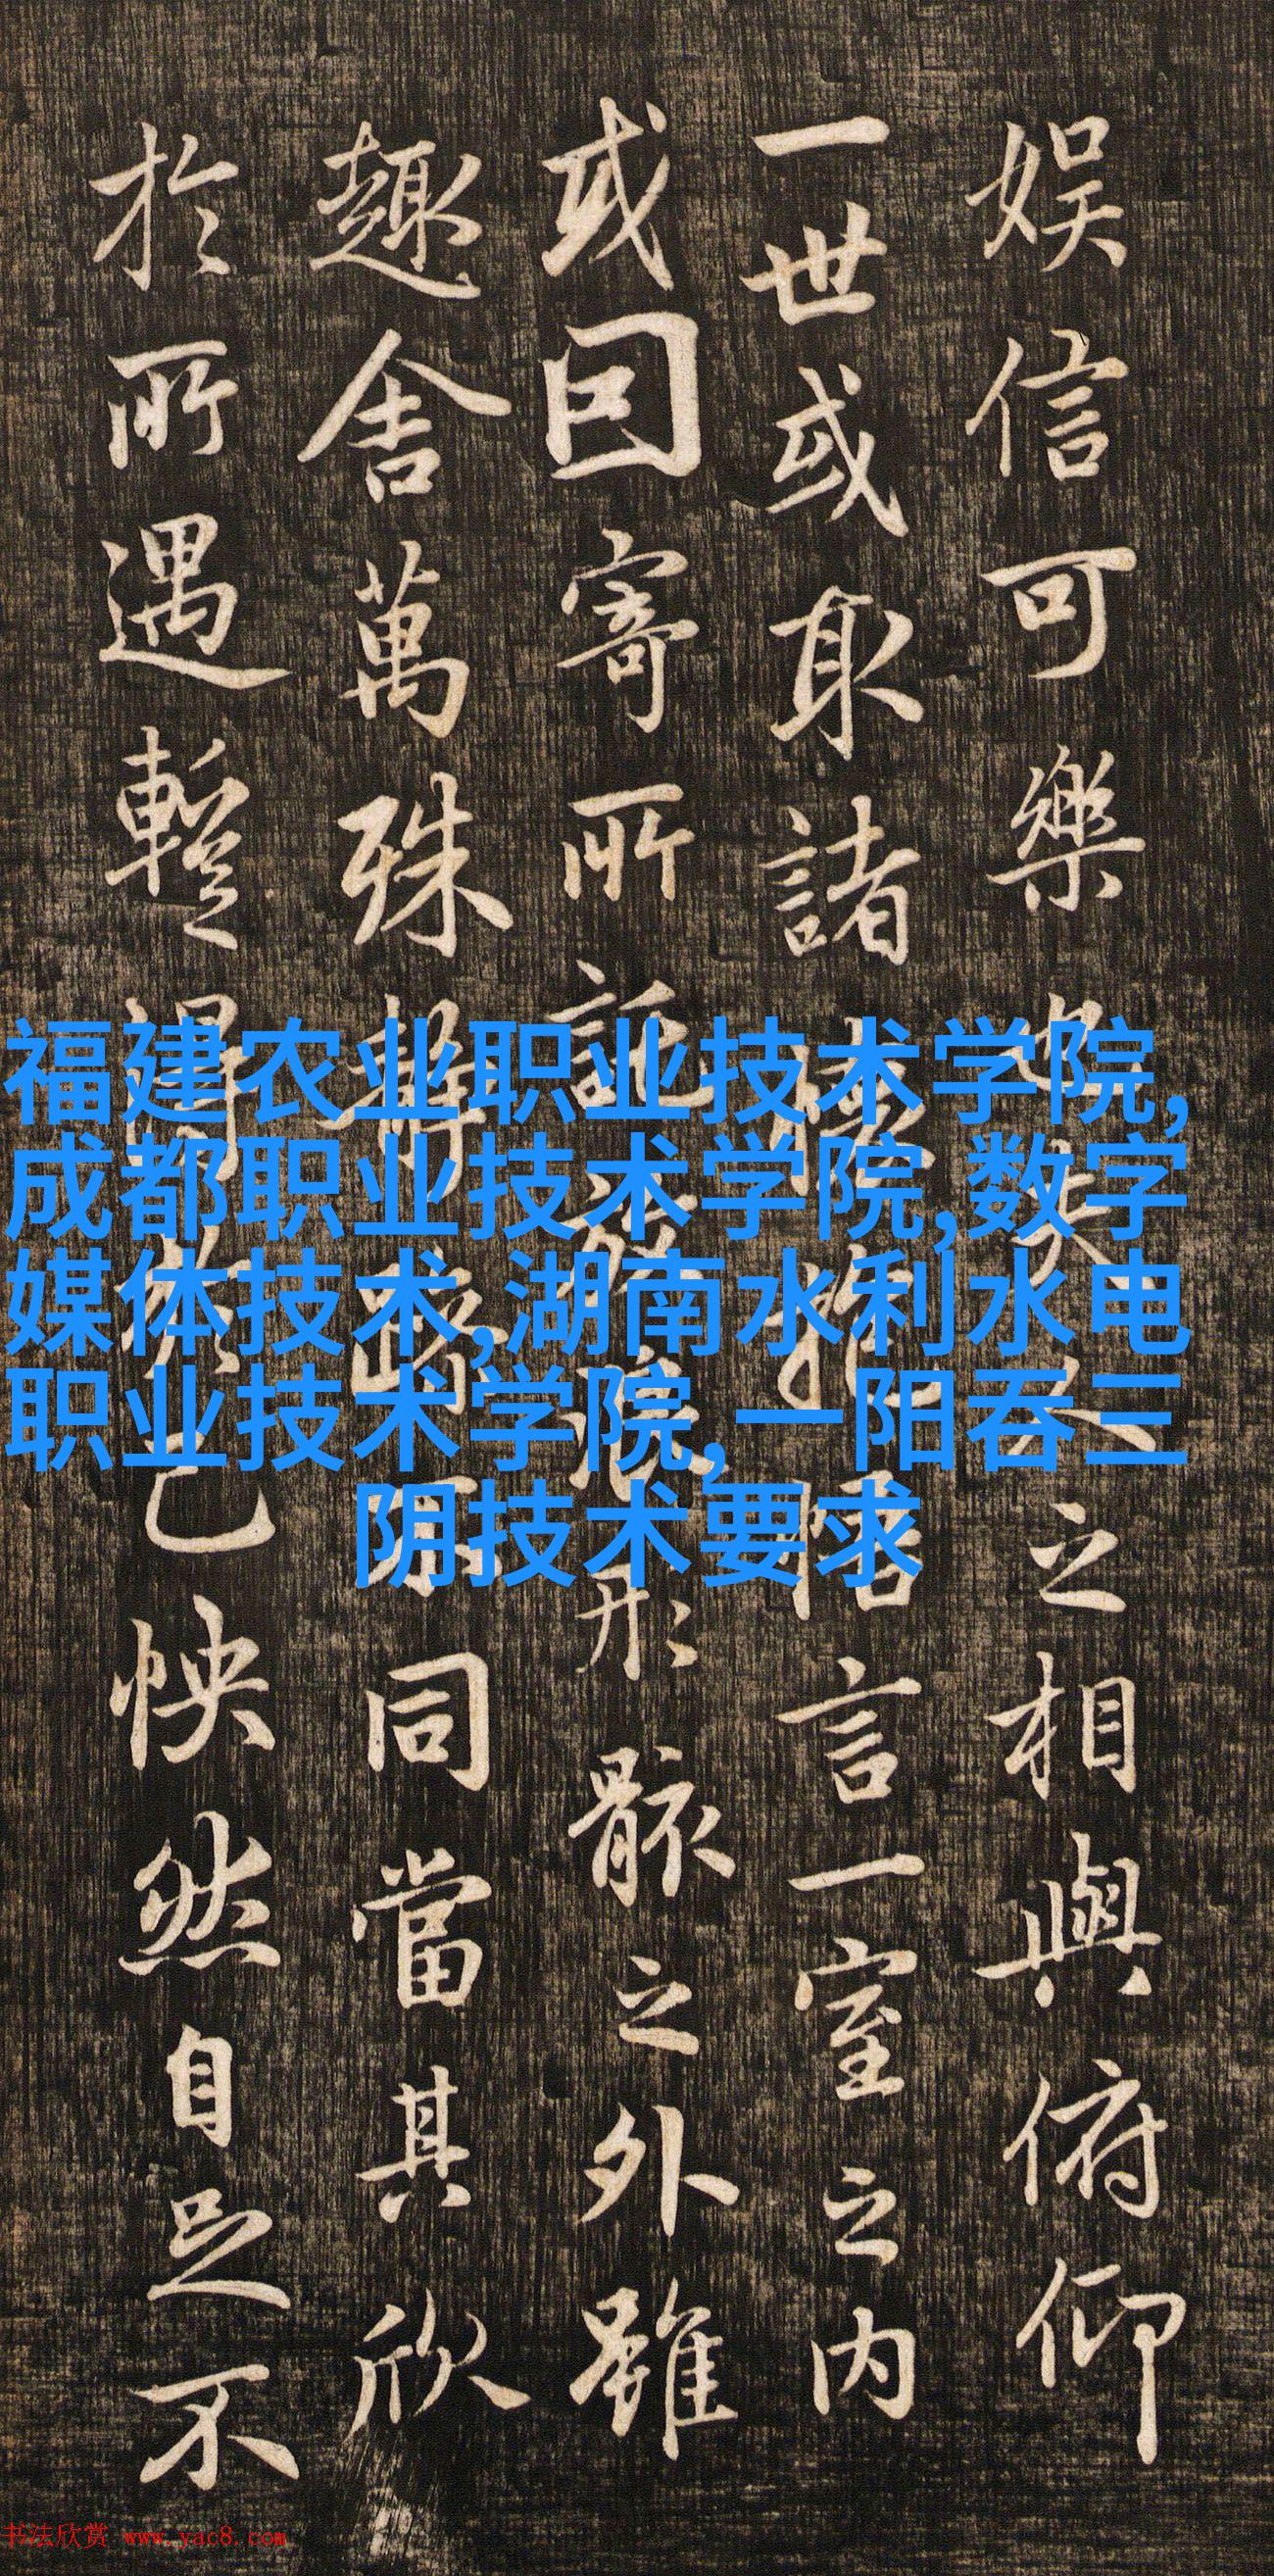 娱信可樂也夫人之相與俯仰
一世或取諸懷抱悟言一室之内
或因寄所託放浪形骸之外雖
趣舍萬殊静躁不同當其欣
於所遇暫得於己怏然自足不
福建农业职业技术学院,
成都职业技术学院,数字
媒体技术,湖南水利水电
职业技术学院,一阳吞三
阴技术要求
书法欣赏 www.yac8.com